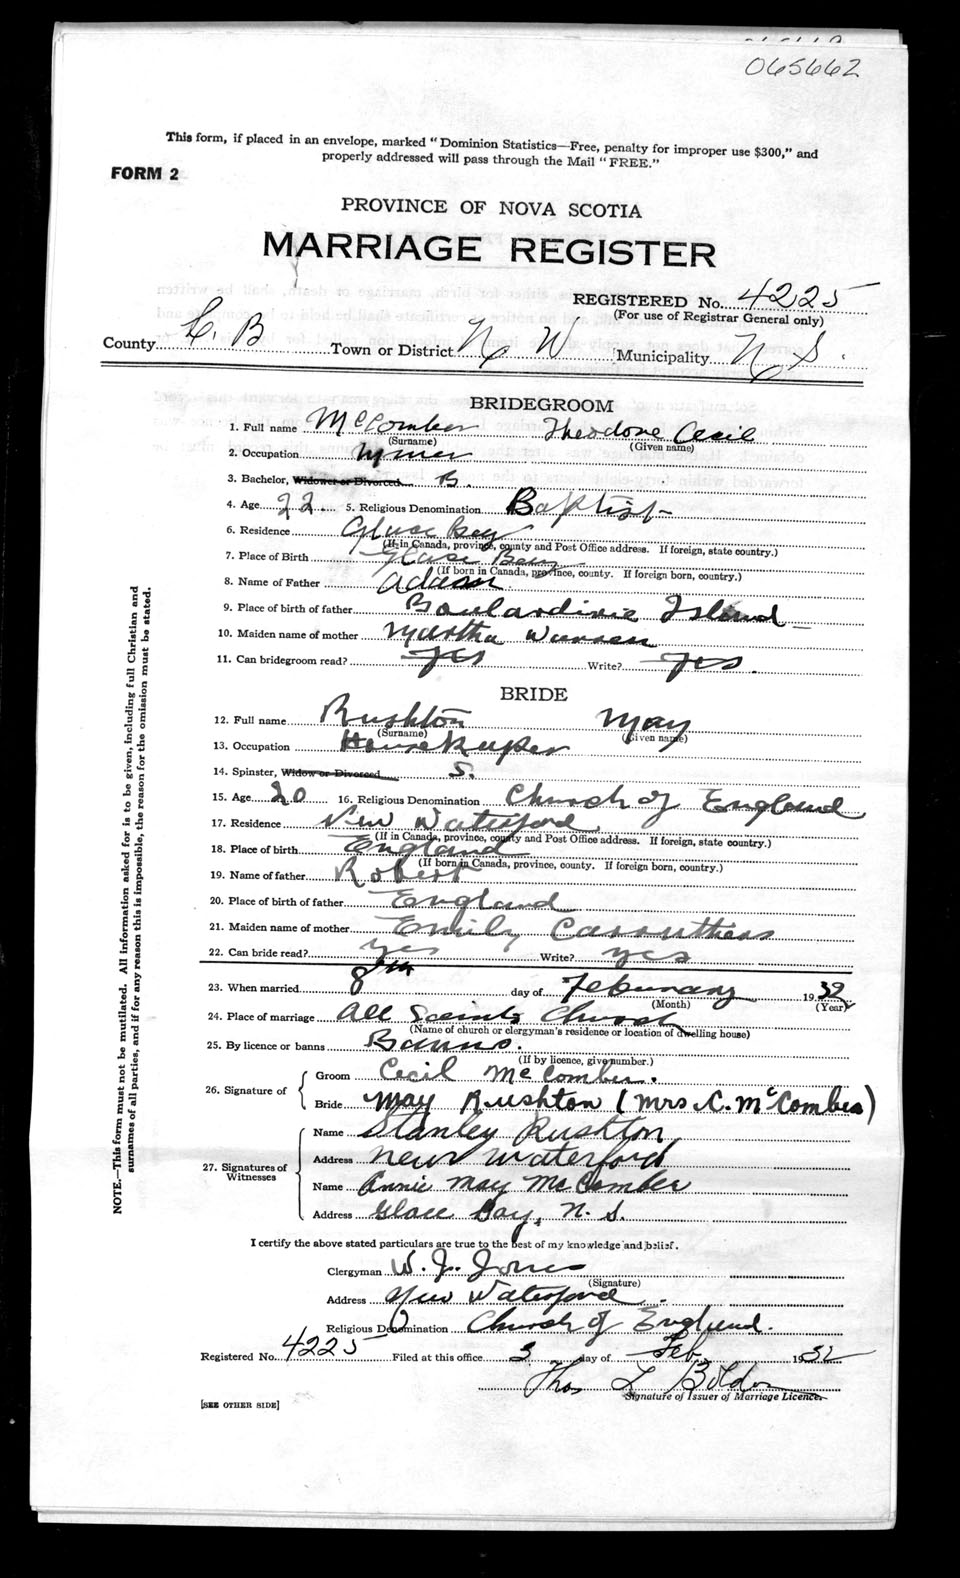 065662
This form, if placed in an envelope, marked "Dominion Statistics—Free, penalty for improper use $300," and
properly addressed will pass through the Mail "FREE."
FORM 2
PROVINCE OF NOVA SCOTIA
MARRIAGE REGISTER
REGISTERED No. 4225
(For use of Registrar General only)
County C. B Town or District N W Municipality N S.
BRIDEGROOM
1. Full name McComber Theodore Cecil
(Surname) (Given name)
2. Occupation Miner
3. Bachelor, Widower or Divorced B.
4. Age 22 5. Religious Denomination Baptist
6. Residence Glace Bay
(If in Canada, province, county and Post Office address. If foreign, state country.)
7. Place of Birth Glace Bay
(If born in Canada, province, county. If foreign born, country.)
8. Name of Father Adam
9. Place of birth of father Boulardirie Island
10. Maiden name of mother Martha
11. Can bridegroom read? Yes Write? Yes.
BRIDE
12. Full name Rushton May
(Surname) (Given name)
13. Occupation Housekeeper
14. Spinster, Widow or Divorced S.
15. Age 20 16. Religious Denomination Church of England
17. Residence New Waterford
(If in Canada, province, county and Post Office address. If foreign, state country.)
18. Place of birth England
(If born in Canada, province, county. If foreign born, country.)
19. Name of father Robert
20. Place of birth of father England
21. Maiden name of mother Emily Carruthers
22. Can bride read? yes Write? yes
23. When married 8th day of February 1932
(Month) (Year)
24. Place of marriage All Saints Church
(Name of church or clergyman's residence or location of dwelling house)
25. By licence or banns Banns.
(If by licence, give number.)
26. Signature of Groom Cecil McComber.
Bride May Rushton (Mrs. C. McComber)
27. Signatures of Witnesses
Name Stanley Rushton
Address New Waterford
Name Annie May McComber
Address Glace Bay, N. S.
I certify the above stated particulars are true to the best of my knowledge and belief.
Clergyman W. J. Jones
(Signature)
Address New Waterford.
Religious Denomination Church of England.
Registered No. 4225 Filed at this office 3 day of Feb 1932
Thos L
Signature of Issuer of Marriage Licence.
[SEE OTHER SIDE]
NOTE.—This form must not be mutilated. All information asked for is to be given, including full Christian and
surnames of all parties, and if for any reason this is impossible, the reason for the omission must be stated.